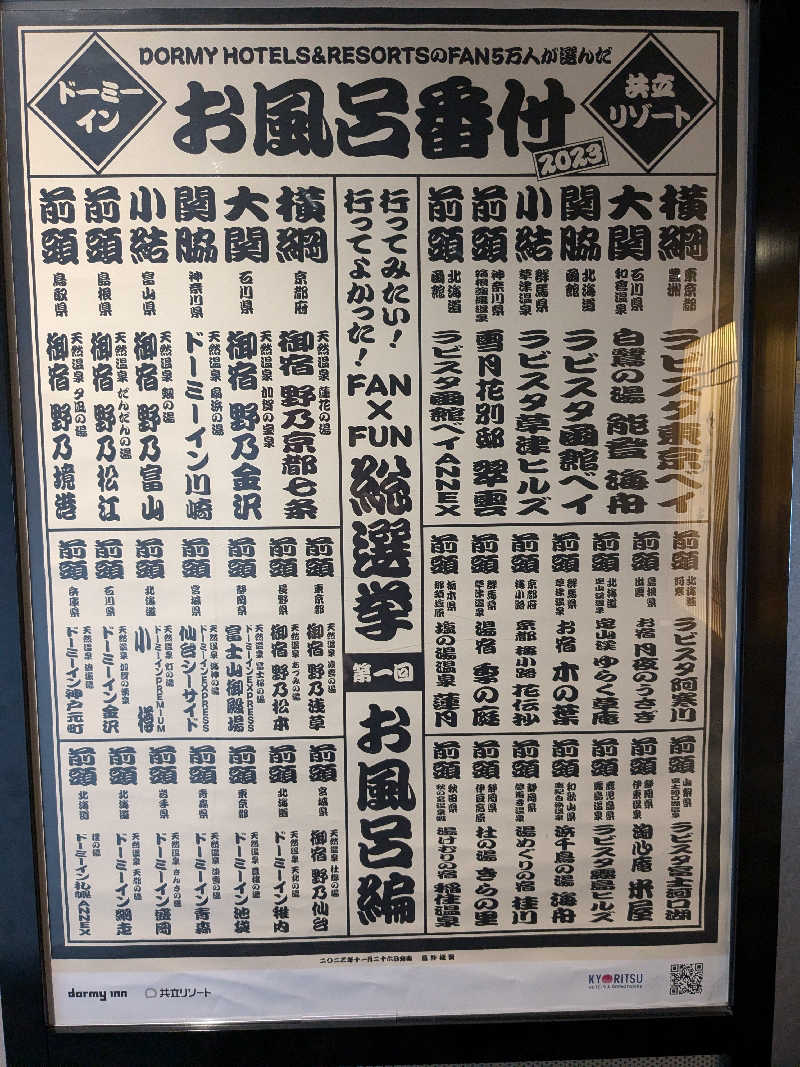 DORMY HOTELS&RESORTSのFAN5万人が選んだ
ドーミー
イン
お風呂番付
2023
共立
リゾート
横綱 東京都 豊洲 ラビスタ東京ベイ
大関 石川県 和倉温泉 白鷺の湯 能登 海舟
関脇 北海道 函館 ラビスタ函館ベイ
小結 群馬県 草津温泉 ラビスタ草津ヒルズ
前頭 神奈川県 箱根強羅温泉 雪月花別邸 翠雲
前頭 北海道 函館 ラビスタ函館ベイANNEX
前頭 北海道 阿寒 ラビスタ阿寒川
前頭 島根県 出雲 お宿 月夜のうさぎ
前頭 北海道 定山渓温泉 定山渓 ゆらく草庵
前頭 群馬県 草津温泉 お宿 木の葉
前頭 京都府 梅小路 京都 梅小路 花伝抄
前頭 群馬県 草津温泉 湯宿 季の庭
前頭 栃木県 那須塩原 塩の湯温泉 蓮月
前頭 山梨県 富士河口湖温泉 ラビスタ富士河口湖
前頭 静岡県 伊東温泉 淘心庵 米屋
前頭 鹿児島県 霧島温泉 ラビスタ霧島ヒルズ
前頭 和歌山県 浜千鳥の湯 海舟
前頭 静岡県 修善寺温泉 湯めぐりの宿 桂川
前頭 静岡県 伊豆高原 杜の湯 きらの里
前頭 秋田県 湯けむりの宿 稲住温泉
行ってみたい!
行ってよかった!
FAN×FUN
総選挙
第一回
お風呂編
横綱 京都府 天然温泉 蓮花の湯 御宿 野乃京都七条
大関 石川県 天然温泉 加賀の宝泉 御宿 野乃金沢
関脇 神奈川県 天然温泉 扇浜の湯 ドーミーイン川崎
小結 富山県 天然温泉 剱の湯 御宿 野乃富山
前頭 島根県 天然温泉 だんだんの湯 御宿 野乃松江
前頭 鳥取県 天然温泉 夕凪の湯 御宿 野乃境港
前頭 東京都 天然温泉 凌雲の湯 御宿 野乃浅草
前頭 長野県 天然温泉 あづみの湯 御宿 野乃松本
前頭 静岡県 天然温泉 富士桜の湯 ドーミーインEXPRESS 富士山御殿場
前頭 宮城県 天然温泉 海神の湯 ドーミーインEXPRESS 仙台シーサイド
前頭 北海道 天然温泉 灯の湯 ドーミーインPREMIUM 小樽
前頭 石川県 天然温泉 加賀の湧泉 ドーミーイン金沢
前頭 兵庫県 天然温泉 浪漫湯 ドーミーイン神戸元町
前頭 宮城県 天然温泉 杜都の湯 御宿 野乃仙台
前頭 北海道 天然温泉 天北の湯 ドーミーイン稚内
前頭 東京都 天然温泉 豊穣の湯 ドーミーイン池袋
前頭 青森県 天然温泉 津軽の湯 ドーミーイン青森
前頭 岩手県 天然温泉 さんさの湯 ドーミーイン盛岡
前頭 北海道 天然温泉 天都の湯 ドーミーイン網走
前頭 北海道 狸の湯 ドーミーイン札幌ANNEX
dormy inn
共立リゾート
KYORITSU